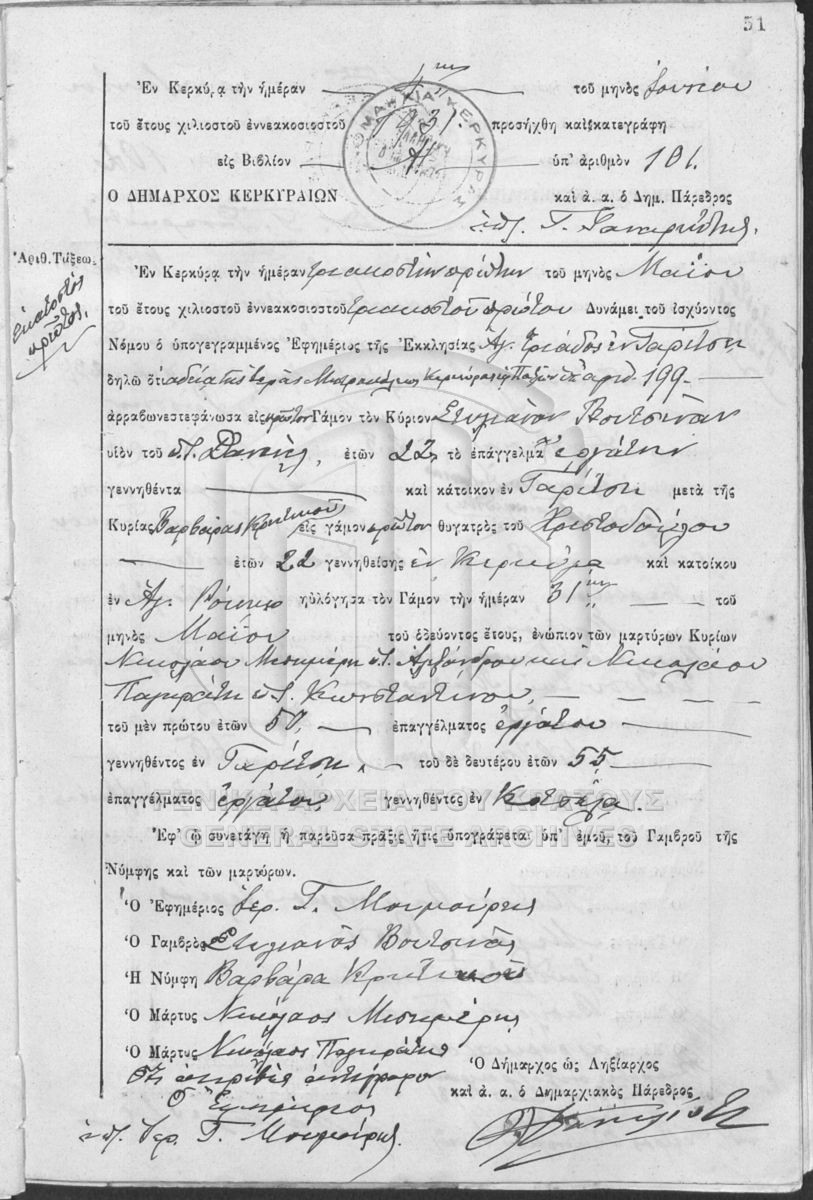 51
Ἐν Κερκύρᾳ τὴν ἡμέραν 4ην τοῦ μηνὸς Ἰουνίου
τοῦ ἔτους χιλιοστοῦ ἐννεακοσιοστοῦ 1931. προσήχθη καὶ κατεγράφη
εἰς Βιβλίον ὑπ' ἀριθμὸν 101.
Ο ΔΗΜΑΡΧΟΣ ΚΕΡΚΥΡΑΙΩΝ καὶ ἀ. α. ὁ Δημ. Πάρεδρος
ΔΗΜΑΡΧΙΑ ΚΕΡΚΥΡΑΙΩΝ
Ἀριθ. Τάξεως
ἑκατοστὸς
πρῶτος.
Ἐν Κερκύρᾳ τὴν ἡμέραν τριακοστὴν πρώτην τοῦ μηνὸς Μαΐου
τοῦ ἔτους χιλιοστοῦ ἐννεακοσιοστοῦ τριακοστοῦ πρώτου Δυνάμει τοῦ ἰσχύοντος
Νόμου ὁ ὑπογεγραμμένος Ἐφημέριος τῆς Ἐκκλησίας Ἁγ. Τριάδος ἐν Γαρίτσῃ
δηλῶ ὅτι ἀδείᾳ τῆς Ἱερᾶς Μητροπόλεως Κερκύρας καὶ Παξῶν ὑπ' ἀριθ. 199.
ἀρραβωνεστεφάνωσα εἰς πρῶτον Γάμον τὸν Κύριον Στυλιανὸν Βουτσινᾶν
υἱὸν τοῦ ἐτῶν 22 τὸ ἐπάγγελμα ἐργάτην
γεννηθέντα καὶ κάτοικον ἐν Γαρίτσῃ μετὰ τῆς
Κυρίας Βαρβάρας Κρητικοῦ εἰς γάμον πρῶτον θυγατρὸς τοῦ Χριστοδούλου
ἐτῶν 22 γεννηθείσης ἐν Κερκύρᾳ καὶ κατοίκου
ἐν Ἁγ. Ρόκκῳ ηὐλόγησα τὸν Γάμον τὴν ἡμέραν 31ην τοῦ
μηνὸς Μαΐου τοῦ ὁδεύοντος ἔτους, ἐνώπιον τῶν μαρτύρων Κυρίων
Νικολάου Μισιμέρη Ἀλεξάνδρου καὶ Νικολάου
Παγκράτη Κωνσταντίνου,
τοῦ μὲν πρώτου ἐτῶν 50, ἐπαγγέλματος ἐργάτου
γεννηθέντος ἐν Γαρίτσῃ, τοῦ δὲ δευτέρου ἐτῶν 55
ἐπαγγέλματος ἐργάτου, γεννηθέντος ἐν
ΓΕΝΙΚΑ ΑΡΧΕΙΑ ΤΟΥ ΚΡΑΤΟΥΣ
GENERAL STATE ARCHIVES
Ἐφ' ᾧ συνετάγη ἡ παροῦσα πρᾶξις ἥτις ὑπογράφεται ὑπ' ἐμοῦ, τοῦ Γαμβροῦ τῆς
Νύμφης καὶ τῶν μαρτύρων.
Ὁ Ἐφημέριος Ἱερ. Γ. Μουμούρης
Ὁ Γαμβρὸς Στυλιανὸς Βουτσινᾶς
Ἡ Νύμφη Βαρβάρα Κρητικοῦ
Ὁ Μάρτυς Νικόλαος Μισιμέρης
Ὁ Μάρτυς Νικόλαος Παγκράτης
Ὅτι ἀκριβὲς ἀντίγραφον
Ὁ Ἐφημέριος
Ἱερ. Γ. Μουμούρης.
Ὁ Δήμαρχος ὡς Ληξίαρχος
καὶ ἀ. α. ὁ Δημαρχιακὸς Πάρεδρος